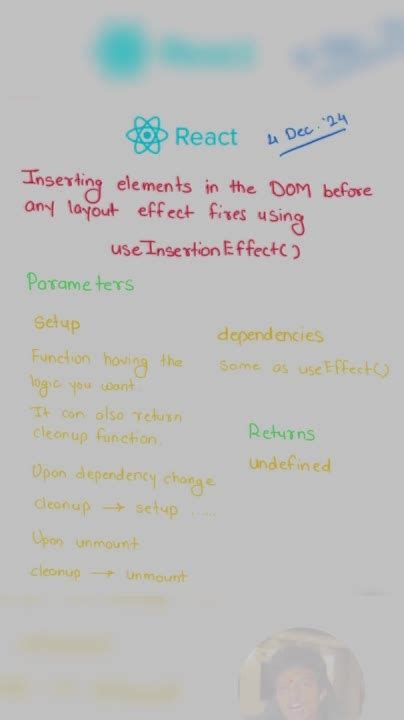 React
4 Dec. '24
Inserting elements in the DOM before
any layout effect fires using
useInsertionEffect()
Parameters
setup
Function having the
logic you want.
It can also return
cleanup function.
Upon dependency change
cleanup → setup .....
Upon unmount
cleanup → unmount
dependencies
same as useEffect()
Returns
undefined